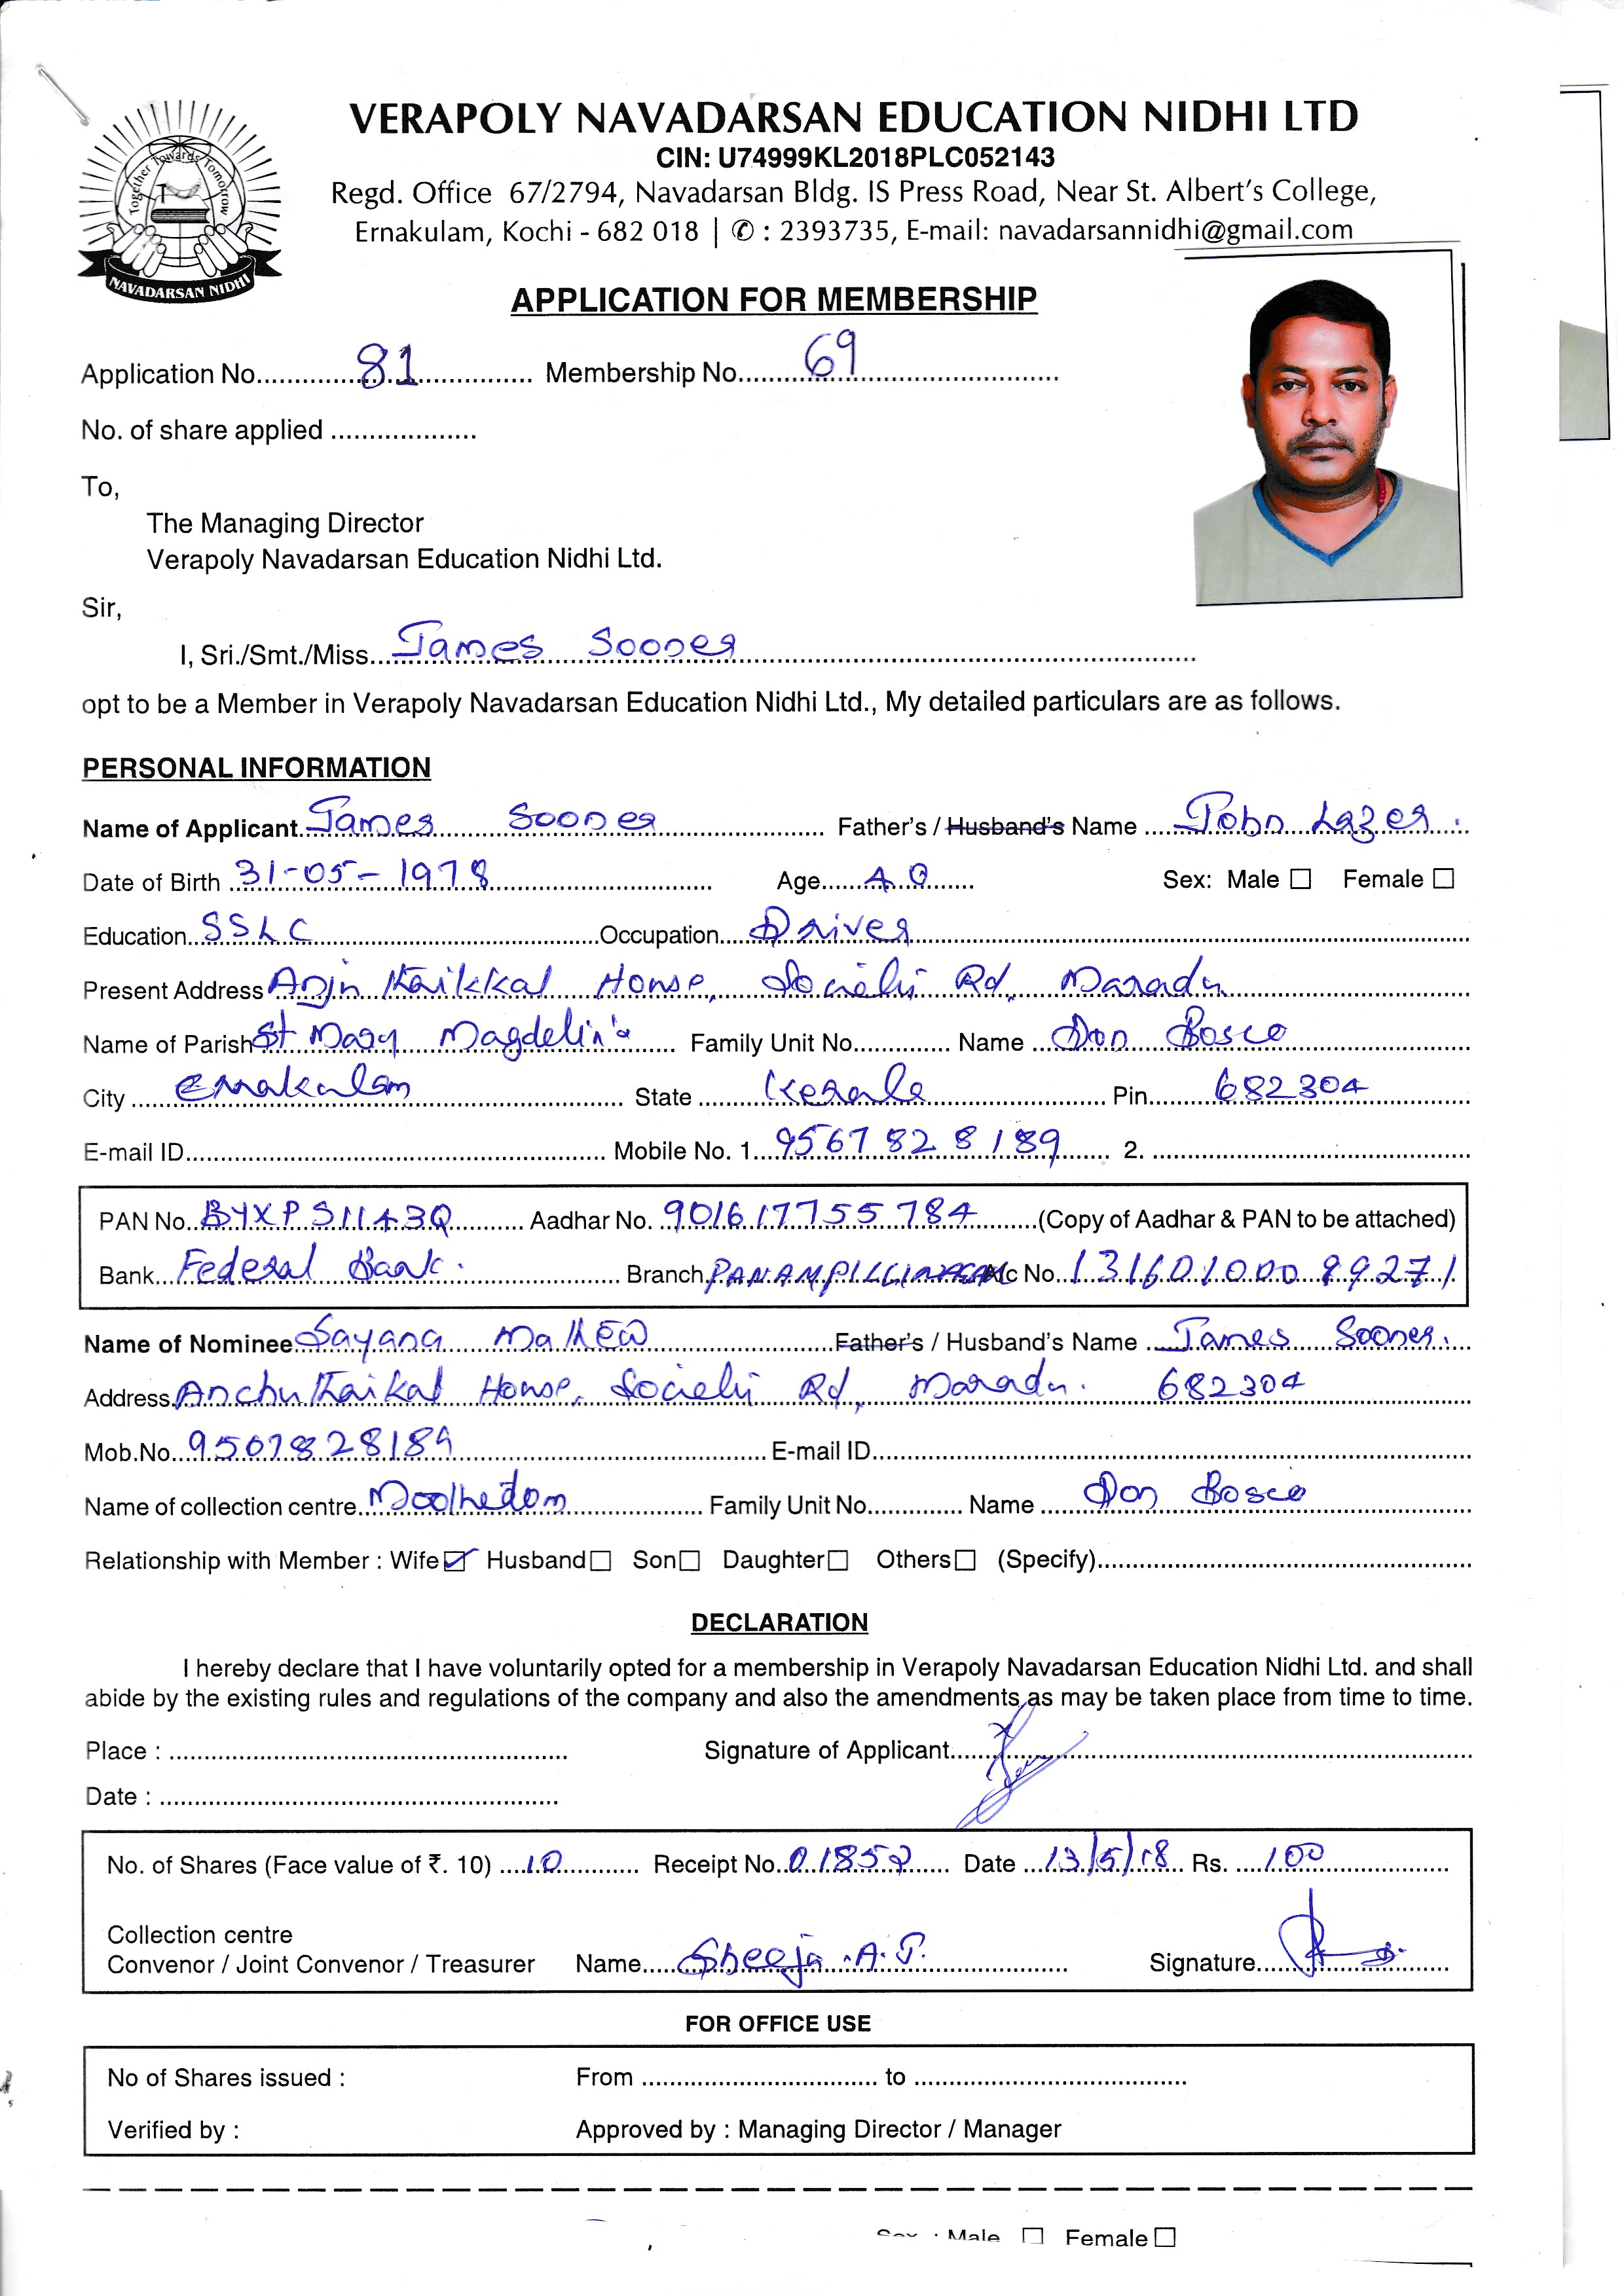 VERAPOLY NAVADARSAN EDUCATION NIDHI LTD
CIN: U74999KL2018PLC052143
Regd. Office 67/2794, Navadarsan Bldg. IS Press Road, Near St. Albert's College,
Ernakulam, Kochi - 682 018 | ✆ : 2393735, E-mail: navadarsannidhi@gmail.com
Together Towards Tomorrow
NAVADARSAN NIDHI
APPLICATION FOR MEMBERSHIP
Application No. 81 Membership No. 69
No. of share applied
To,
The Managing Director
Verapoly Navadarsan Education Nidhi Ltd.
Sir,
I, Sri./Smt./Miss. James Sooner
opt to be a Member in Verapoly Navadarsan Education Nidhi Ltd., My detailed particulars are as follows.
PERSONAL INFORMATION
Name of Applicant James Sooner Father's / Husband's Name John Lazer
Date of Birth 31-05-1978 Age 40 Sex: Male Female
Education SSLC Occupation Driver
Present Address House, Rd, Maradu
Name of Parish St Mary Magdelin's Family Unit No. Name Don Bosco
City Ernakulam State Kerala Pin 682304
E-mail ID Mobile No. 1. 9567828189 2.
PAN No. BYXPS1143Q Aadhar No. 901617755784 (Copy of Aadhar & PAN to be attached)
Bank Federal Bank. Branch A/c No. 13160100089271
Name of Nominee Sayana Mathew Father's / Husband's Name James Sooner.
Address House, Rd, Maradu. 682304
Mob.No. 9567828189 E-mail ID
Name of collection centre Family Unit No. Name Don Bosco
Relationship with Member : Wife Husband Son Daughter Others (Specify)
DECLARATION
I hereby declare that I have voluntarily opted for a membership in Verapoly Navadarsan Education Nidhi Ltd. and shall
abide by the existing rules and regulations of the company and also the amendments as may be taken place from time to time.
Place : Signature of Applicant
Date :
No. of Shares (Face value of ₹. 10) 10 Receipt No. Date 13/5/18 Rs. 100
Collection centre
Convenor / Joint Convenor / Treasurer Name Sheeja A.J. Signature
FOR OFFICE USE
No of Shares issued : From to
Verified by : Approved by : Managing Director / Manager
Sex : Male Female